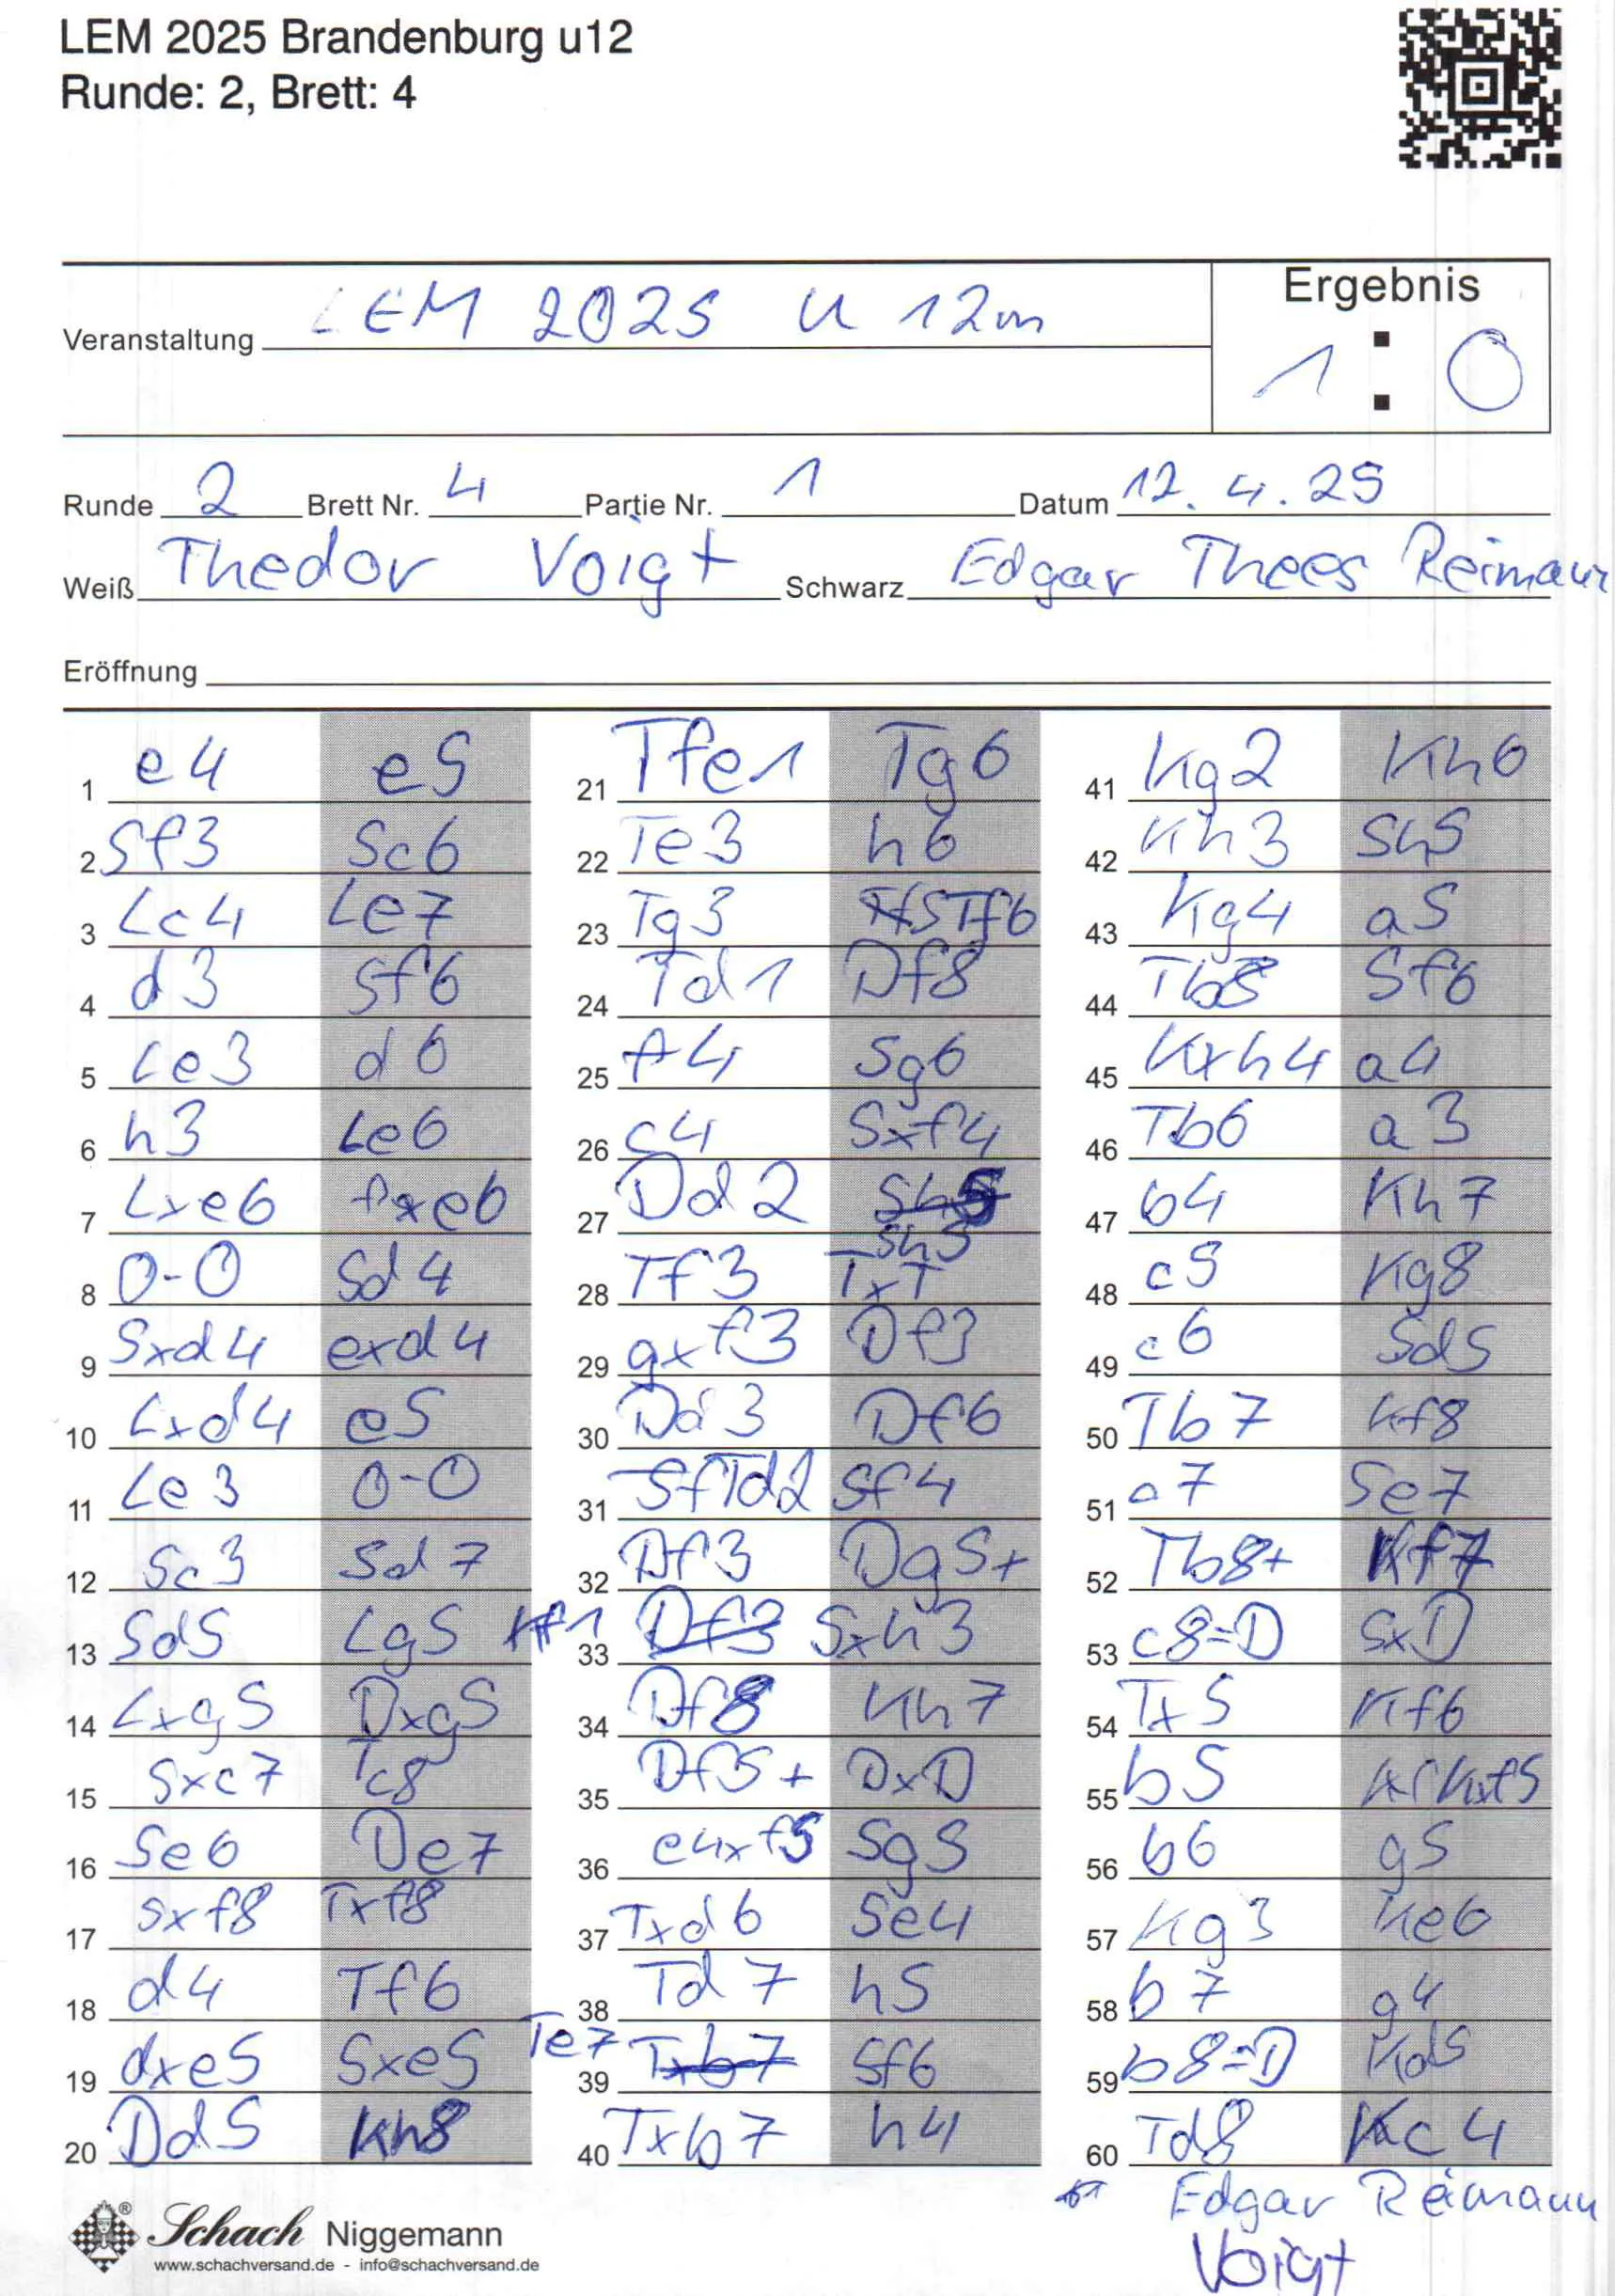 LEM 2025 Brandenburg u12
Runde: 2, Brett: 4
Ergebnis
Veranstaltung LEM 2025 U 12m
1 : 0
Runde 2 Brett Nr. 4 Partie Nr. 1 Datum 12.4.25
Weiß Thedor Voigt Schwarz Edgar Thees Reimann
Eröffnung
1 e4 e5
2 Sf3 Sc6
3 Lc4 Le7
4 d3 Sf6
5 Le3 d6
6 h3 Le6
7 Lxe6 fxe6
8 0-0 Sd4
9 Sxd4 exd4
10 Lxd4 e5
11 Le3 0-0
12 Sc3 Sd7
13 Sd5 Lg5
14 Lxg5 Dxg5
15 Sxc7 Tc8
16 Se6 De7
17 Sxf8 Txf8
18 d4 Tf6
19 dxe5 Sxe5
20 Dd5 Kh8
21 Tfe1 Tg6
22 Te3 h6
23 Tg3 Tf6
24 Td1 Df8
25 f4 Sg6
26 c4 Sxf4
27 Dd2 Sh5
28 Tf3 TxT
29 gxf3 Df3
30 Dd3 Df6
31 Td2 Sf4
32 Df3 Dg5+
33 Kf1 Df3 Sxh3
34 Df8 Kh7
35 Df5+ DxD
36 e4xf5 Sg5
37 Txd6 Se4
38 Td7 h5
39 Te7 Txb7 Sf6
40 Txb7 h4
41 Kg2 Kh6
42 Kh3 Sh5
43 Kg4 a5
44 Tb8 Sf6
45 Kxh4 a4
46 Tb6 a3
47 b4 Kh7
48 c5 Kg8
49 c6 Sd5
50 Tb7 Kf8
51 c7 Se7
52 Tb8+ Kf7
53 c8=D SxD
54 Tx5 Kf6
55 b5 Kxf5
56 b6 g5
57 Kg3 Ke6
58 b7 g4
59 b8=D Kd5
60 Td8 Kc4
Edgar Reimann
Voigt
Schach Niggemann
www.schachversand.de - info@schachversand.de